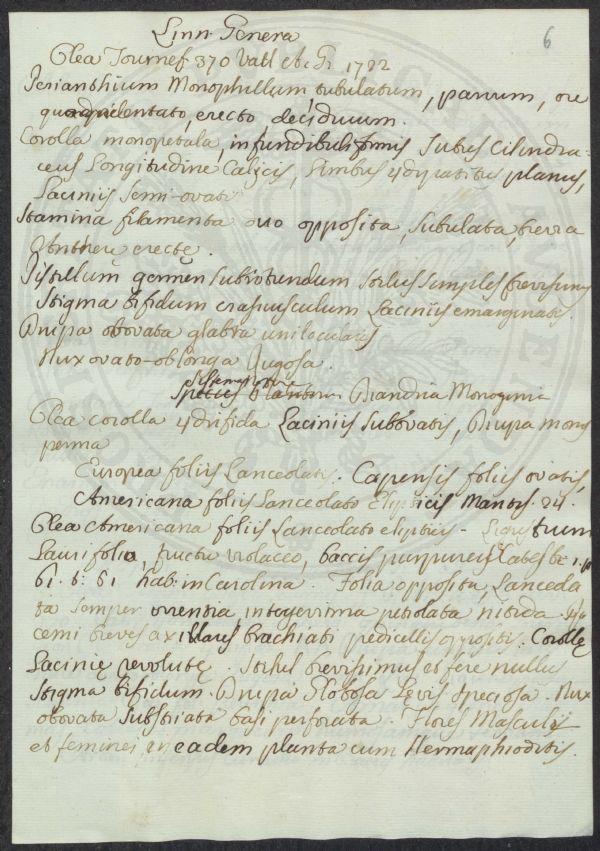 Linn Genera
6
Olea Tournef 370 Vall etc Gi 1722
Perianthium Monophyllum tubulatum, parvum, ore
quadridentato, erecto deciduum.
Corolla monopetala, infundibuliformis Tubus cilindra-
ceus Longitudine Calicis, Limbus 4dripartitus planus,
Laciniis semi-ovatis
Stamina filamenta duo opposita, subulata, brevia
Anthere erectę.
Pistillum germen subrotundum stilus simplex brevissimus
Stigma bifidum crassiusculum Laciniis emarginatis.
Drupa obovata glabra unilocularis
Nux ovato-oblonga Rugosa.
Species Plantarum Diandria Monoginia
Olea corolla 4drifida Laciniis subovatis, Drupa monos
perma
Europea foliis Lanceolatis. Capensis foliis ovatis,
Americana foliis Lanceolato Elipticis Mantis. 24.
Olea Americana foliis Lanceolato elipticis - Ligustrum
Lauri folio, fructu violaceo, baccis purpureis Catesb: 1. p
61. t: 61 hab: in Carolina. Folia opposita, Lanceola
ta semper virentia, integerrima petiolata nitida. Ra
cemi breves axillares brachiati pedicellis oppositis. Corollę
Lacinię revolutę. Stilus brevissimus et fere nullus
Stigma bifidum. Drupa Globosa Lęvis speciosa. Nux
obovata substriata basi perforata. Flores Masculi
et feminei in eadem planta cum Hermaphroditis.